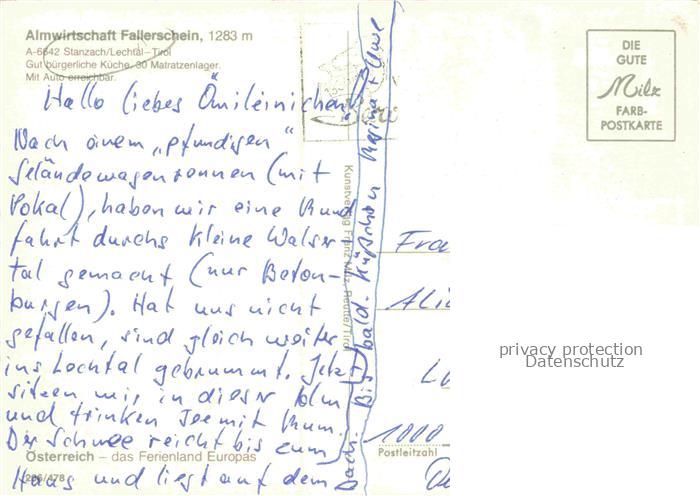 Almwirtschaft Fallerschein, 1283 m
A-6642 Stanzach/Lechtal – Tirol
Gut bürgerliche Küche, 30 Matratzenlager.
Mit Auto erreichbar.
DIE
GUTE
Milz
FARB-
POSTKARTE
Hallo liebes Ömileinichen!
Nach einem „pfundigen"
Geländewagenrennen (mit
Pokal), haben wir eine Rund
fahrt durchs kleine Walser
tal gemacht (nur Beton-
burgen). Hat uns nicht
gefallen, sind gleich weiter
ins Lechtal gebrummt. Jetzt
sitzen wir in dieser Alm
und trinken Tee mit Rum.
Der Schnee reicht bis zum
Haus und liegt auf dem
Dach. Bis bald. Küßchen Regina + Uwe
Kunstverlag Franz Milz, Reutte/Tirol
Fra
Ali
1000
Postleitzahl
Österreich – das Ferienland Europas
privacy protection
Datenschutz